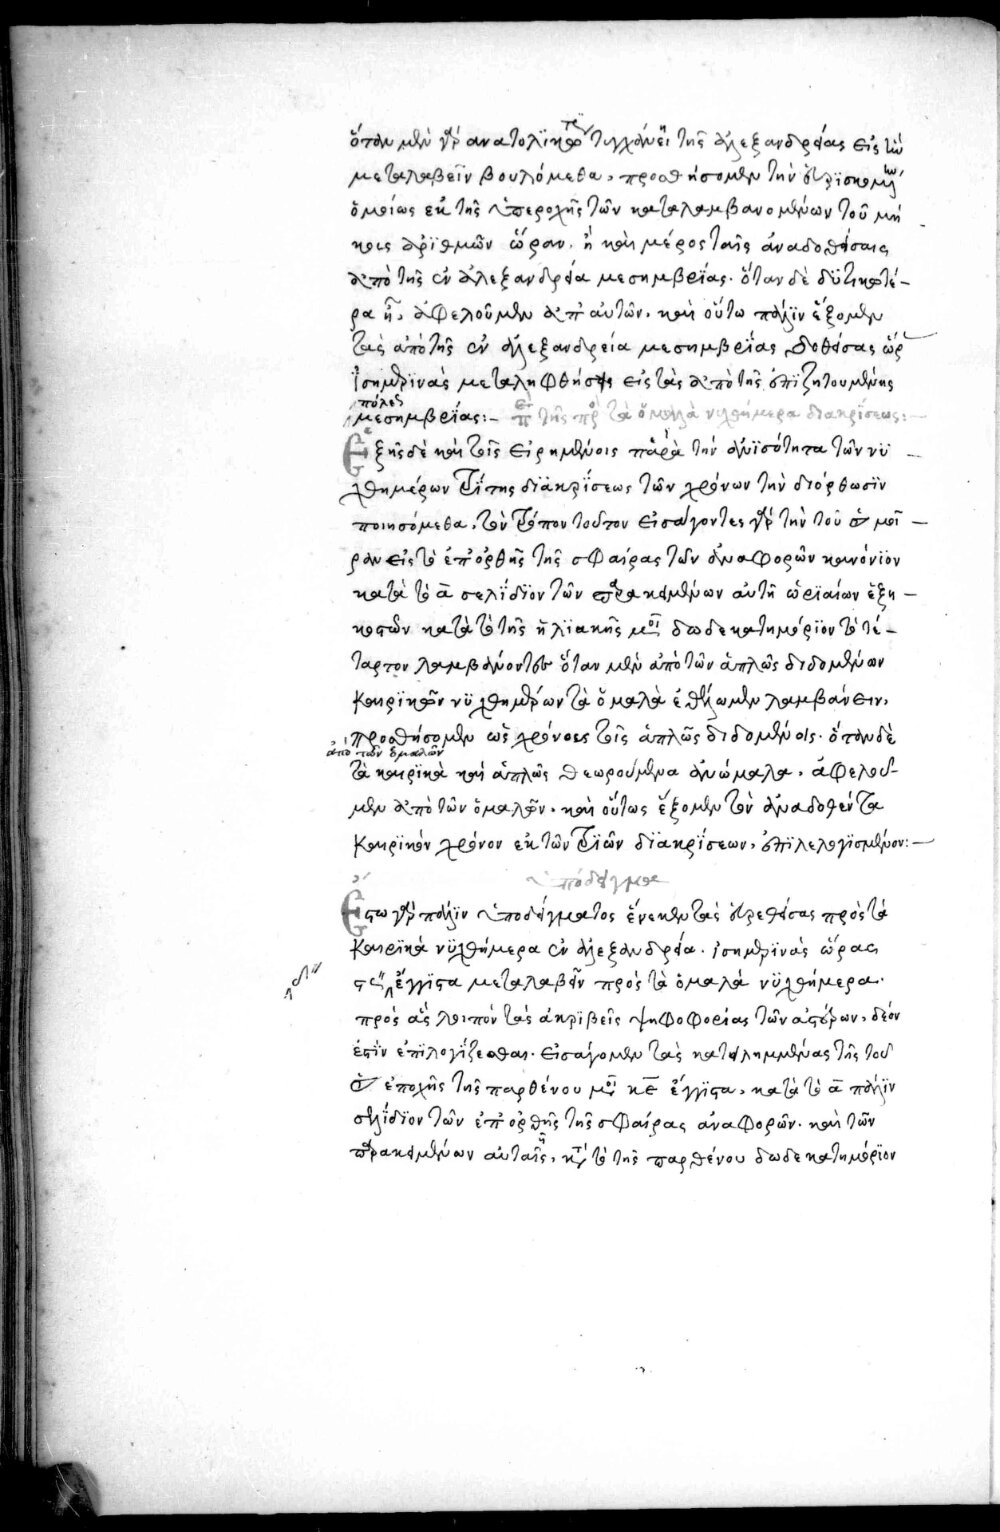 ὅταν μὲν γὰρ ἀνατολϊκωτέρα τυγχάνῃ τῆς ἀλεξανδρείας εἰς ἣν
μεταλαβεῖν βουλόμεθα, προσθήσομεν τὴν εὑρϊσκομένην
ὁμοίως ἐκ τῆς ὑπεροχῆς τῶν καταλαμβανομένων τοῦ μή
κους ἀρϊθμῶν ὥραν, ἢ καὶ μέρος ταῖς ἀναδοθείσαις
ἀπὸ τῆς ἐν ἀλεξανδρεία μεσημβρίας. ὅταν δὲ δϋτικωτέ-
ρα ᾖ, ἀφελοῦμεν ἀπ' αὐτῶν. καὶ οὕτω πάλϊν ἕξομεν
τὰς ἀπὸ τῆς ἐν ἀλεξανδρεία μεσημβρίας δοθείσας ὥρας
ἰσημερϊνὰς μεταληφθείσας εἰς τὰς ἀπὸ τῆς ἐπϊζητουμένης
πόλεως
μεσημβρίας:- ἐπὶ τῆς πρὸς τὰ ὁμαλὰ νυχθήμερα διακρίσεως:-
Ἑξῆς δὲ καὶ τοῖς εἰρημένοις παρὰ τὴν ἀνϊσότητα τῶν νϋ-
χθημέρων ἐπὶ τῆς διακρΐσεως τῶν χρόνων τὴν διόρθωσϊν
ποιησόμεθα, τὸν τρόπον τοῦτον εἰσάγοντες γὰρ τὴν τοῦ ἡλίου μοῖ-
ραν εἰς τὸ ἐπ' ὀρθῆς τῆς σφαίρας τῶν ἀναφορῶν κανόνϊον
κατὰ τὸ α σελίδϊον τῶν παρακειμένων αὐτῇ ὡριαίων ἑξη-
κοστῶν κατὰ τὸ τῆς ἡλϊακῆς μοίρας δωδεκατημόρϊον τὸ τέ-
ταρτον λαμβάνοντες ὅταν μὲν ἀπὸ τῶν ἁπλῶς διδομένων
καιρϊκῶν νϋχθημέρων τὰ ὁμαλὰ ἐθέλωμεν λαμβάνειν,
προσθήσομεν ὡς χρόνους τοῖς ἁπλῶς διδομένοις. ὅταν δὲ
ἀπὸ τῶν ὁμαλῶν
τὰ καιρϊκὰ καὶ ἁπλῶς θεωρούμενα ἀνώμαλα, ἀφελοῦ-
μεν ἀπὸ τῶν ὁμαλῶν, καὶ οὕτως ἕξομεν τὸν ἀναδοθέντα
καιρϊκὸν χρόνον ἐκ τῶν τοιῶν διακρΐσεων, ἐπϊλελογϊσμένον:-
ὑπόδειγμα
Ἔστω γὰρ πάλϊν ὑποδείγματος ἕνεκεν τὰς εὑρεθείσας πρὸς τὰ
καιρϊκὰ νϋχθήμερα ἐν ἀλεξανδρεία ἰσημερϊνὰς ὥρας
ἔγγϊστα μεταλαβεῖν πρὸς τὰ ὁμαλὰ νϋχθήμερα.
πρὸς ἃς λοιπὸν τὰς ἀκρϊβεῖς ψηφοφορίας τῶν ἀστέρων, δέον
ἐστὶν ἐπϊλογΐζεσθαι. εἰσάγομεν τὰς κατειλημμένας τῆς τοῦ
ἡλίου ἐποχῆς τῆς παρθένου μοίρας κε ἔγγϊστα, κατὰ τὸ α πάλϊν
σελΐδϊον τῶν ἐπ' ὀρθῆς τῆς σφαίρας ἀναφορῶν. καὶ τῶν
παρακειμένων αὐταῖς, κατὰ τὸ τῆς παρθένου δωδεκατημόρϊον